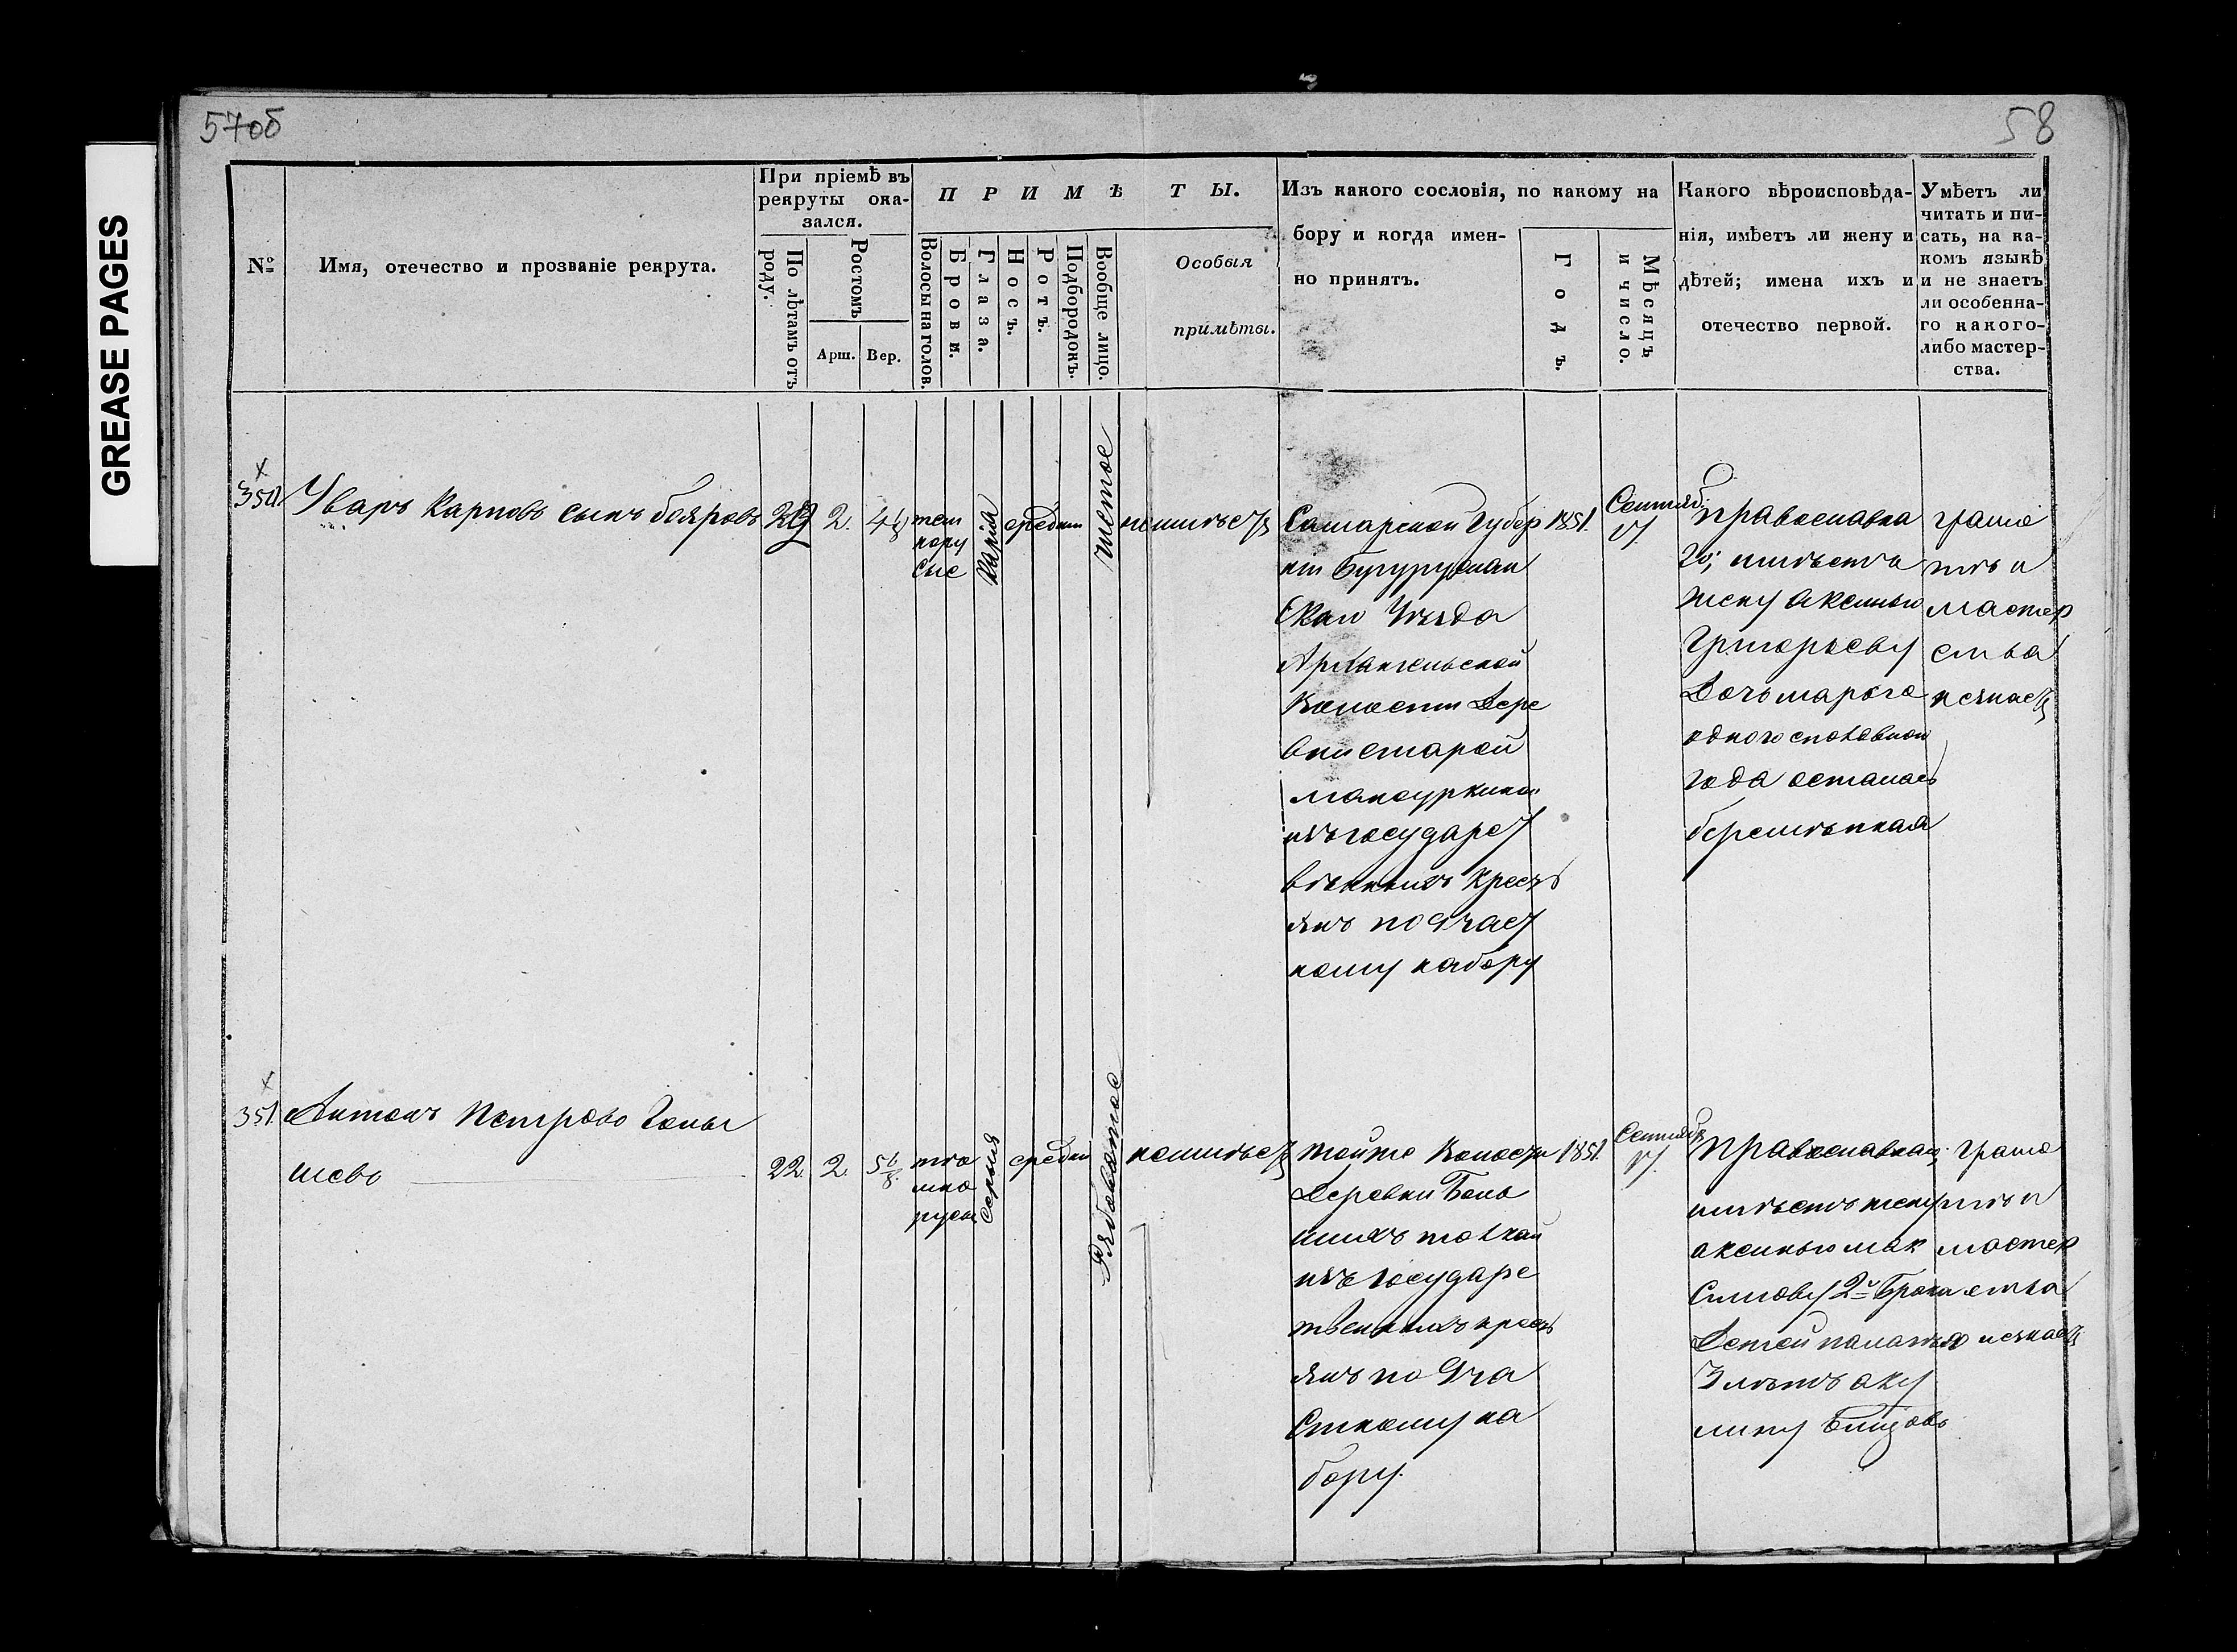 57об
58
GREASE PAGES
№
Имя, отечество и прозваніе рекрута.
При пріемѣ въ
рекруты ока-
зался.
По лѣтамъ отъ
роду.
Ростомъ
Арш. Вер.
ПРИМѢТЫ.
Волосы на голов.
Брови.
Глаза.
Носъ.
Ротъ.
Подбородокъ.
Вообще лицо.
Особыя
примѣты.
Изъ какого сословія, по какому на
бору и когда имен-
но принятъ.
Годъ.
Мѣсяцъ
и число.
Какого вѣроисповѣда-
нія, имѣетъ ли жену и
дѣтей; имена ихъ и
отечество первой.
Умѣетъ ли
читать и пи-
сать, на ка-
комъ языкѣ
и не знаетъ
ли особенна-
го какого-
либо мастер-
ства.
350
Уваръ Карповъ сынъ бояровъ
2.
тем
нору
сые
Карія
средни
чистое
неимѣет
Самарской Губер
ніи Бугуруслан
Скаго Уѣзда
Архангельской
Волости Дере
вни старой
мансуркиной
изъ государст
венныхъ крест
янъ по част
ному набору
1851.
Сентяб.
православна
го; имѣетъ
жену аксинью
Григорьеву
Дочь марфо
одного споловиной
года осталась
беременная
грамо
тѣ и
мастер
ства
незнает
351.
Антонъ Петровъ Гоны
шевъ
22. 2. 5 6/8
тѣ
мно
русы
Серыя
средни
Рябоватое
неимѣет
тойже Волости
Деревни Боль
шихъ толкай
изъ государс
твенныхъ крест
янъ по Ча
Стному на
бору.
1851.
Сентяб
православнаго,
имѣетъ жену
аксинью мак
Симову 2й брака
Детей
3 лѣтъ аку
лину
грамо
тѣ и
мастер
ства
незнает